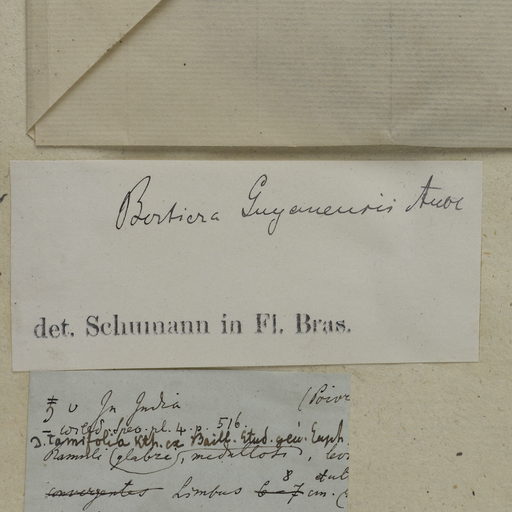 Bertiera Guyanensis Aubl
det. Schumann in Fl. Bras.
In India (Poir
Willd. spec. pl. 4. p. 516.
Kth. ex Baill. Etud. gén. Euph.
Ramuli (glabri), medullosi,
convergentes Limbus 6-7 8 cm.